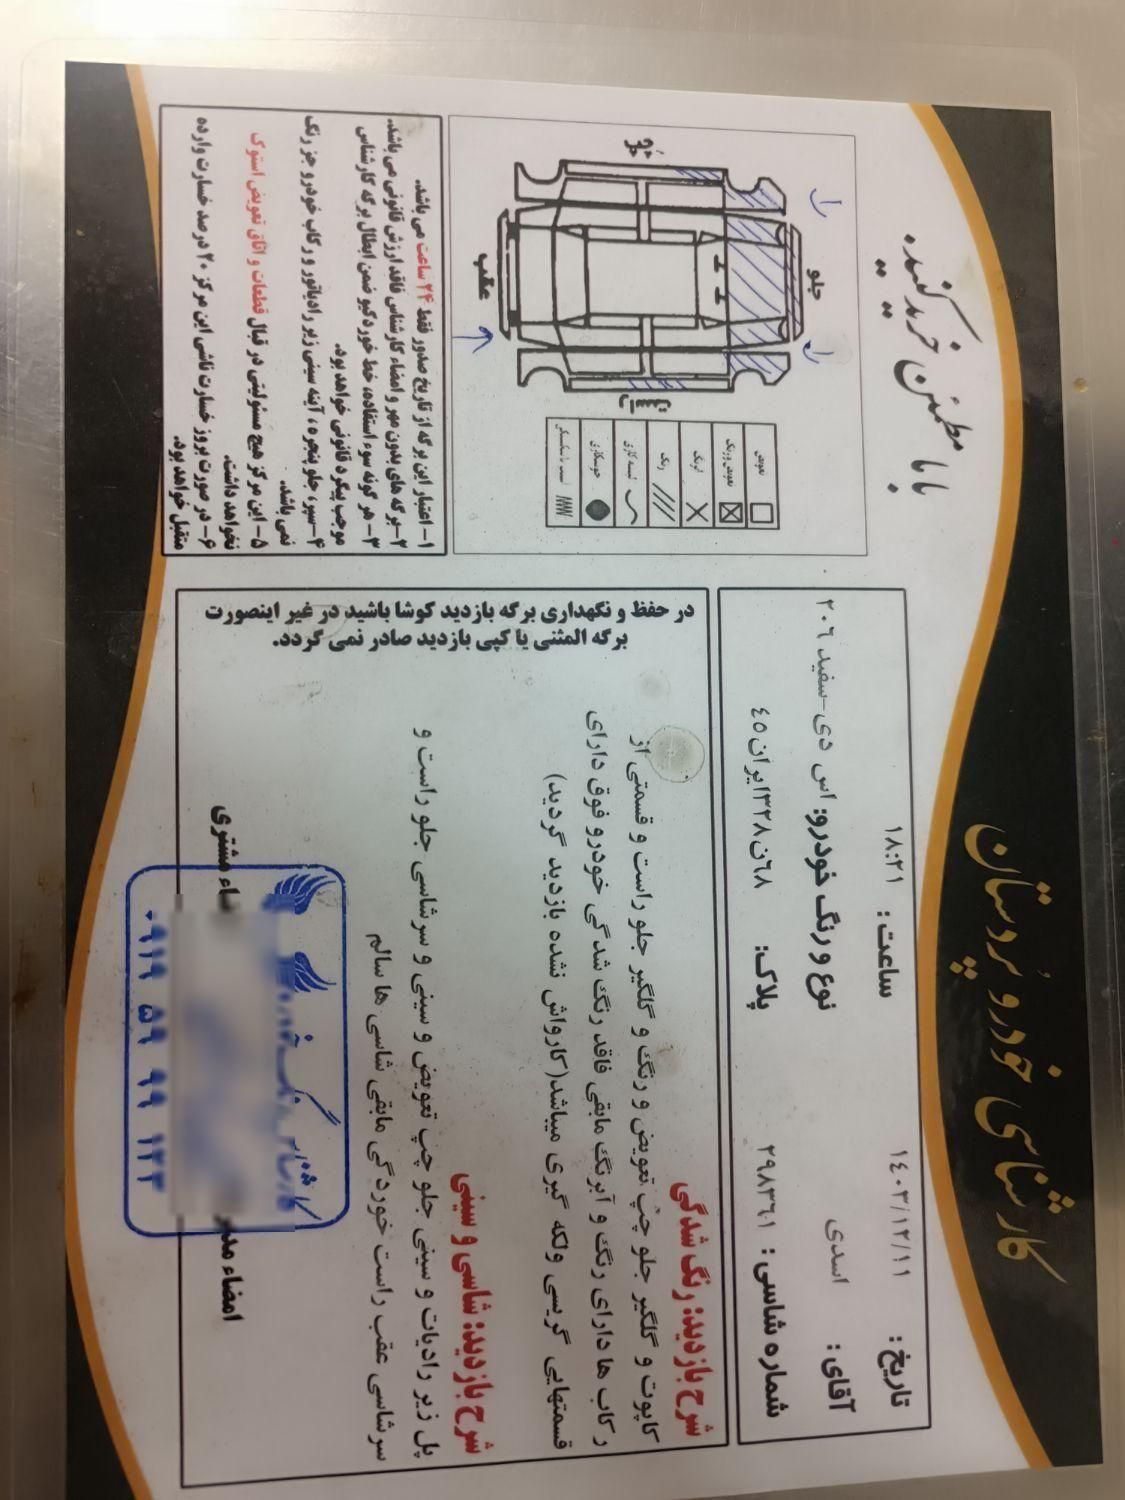 کارشناسی خودرو پُردستان
با ما مطمئن خرید کنید.
تاریخ: ۱۴۰۳/۱۲/۱۱
ساعت: ۱۸:۲۱
آقای: اسدی
نوع و رنگ خودرو: اس دی-سفید ۲۰۶
شماره شاسی: ۲۹۸۳۶۱
پلاک: ۶۸ن۳۲۸ایران۴۵
جلو
عقب
تعویض
تعویض و رنگ
لیرنگ
رنگ
لیسه کاری
۱- اعتبار این برگه از تاریخ صدور فقط ۲۴ ساعت می باشد.
۲- برگه های بدون مهر و امضاء کارشناس فاقد ارزش قانونی می باشد.
۳- هر گونه سوء استفاده، خط خوردگیو ضمن ابطال برگه کارشناس
موجب پیگرد قانونی خواهد بود.
۴- سپر، جلو پنجره، آینه سینی زیر رادیاتور و رکاب خودرو جز رنگ
نمی باشد.
۵- این مرکز هیچ مسئولیتی در قبال قطعات و اتاق تعویض استوک
نخواهد داشت.
۶- در صورت بروز خسارت ناشی این مرکز ۲۰ درصد خسارت وارده
متقبل خواهد بود.
در حفظ و نگهداری برگه بازدید کوشا باشید در غیر اینصورت
برگه المثنی یا کپی بازدید صادر نمی گردد.
شرح بازدید: رنگ شدگی
کاپوت و گلگیر جلو چپ تعویض و رنگ و گلگیر جلو راست و قسمتی از
رکاب ها دارای رنگ و آبرنگ مابقی فاقد رنگ شدگی خودرو فوق دارای
قسمتهایی گریسی ولکه گیری میباشد(کارواش نشده بازدید گردید)
شرح بازدید: شاسی و سینی
پل زیر رادیات و سینی جلو چپ تعویض و سینی و سرشاسی جلو راست و
سرشاسی عقب راست خوردگی مابقی شاسی ها سالم
امضاء مشتری
امضاء مدیر
۰۹۱۹ ۵۹ ۹۹ ۱۲۳